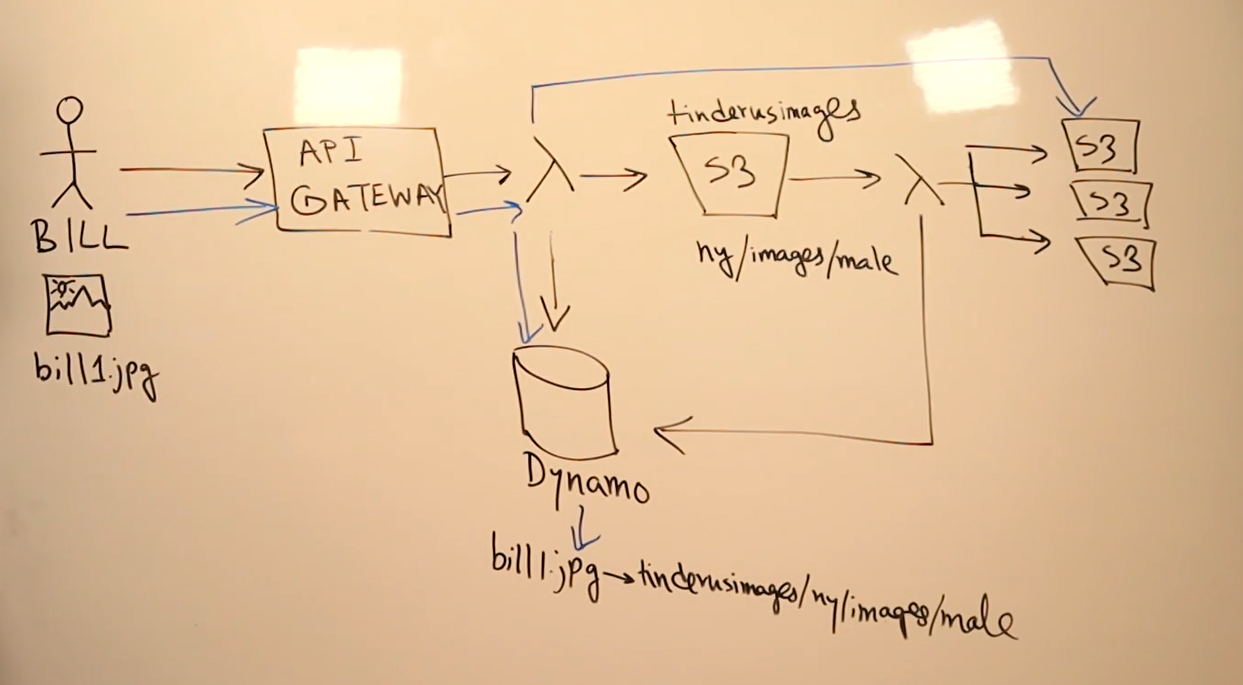 BILL
bill1.jpg
API
GATEWAY
λ
tinderusimages
S3
ny/images/male
λ
S3
S3
S3
Dynamo
bill1.jpg→tinderusimages/ny/images/male